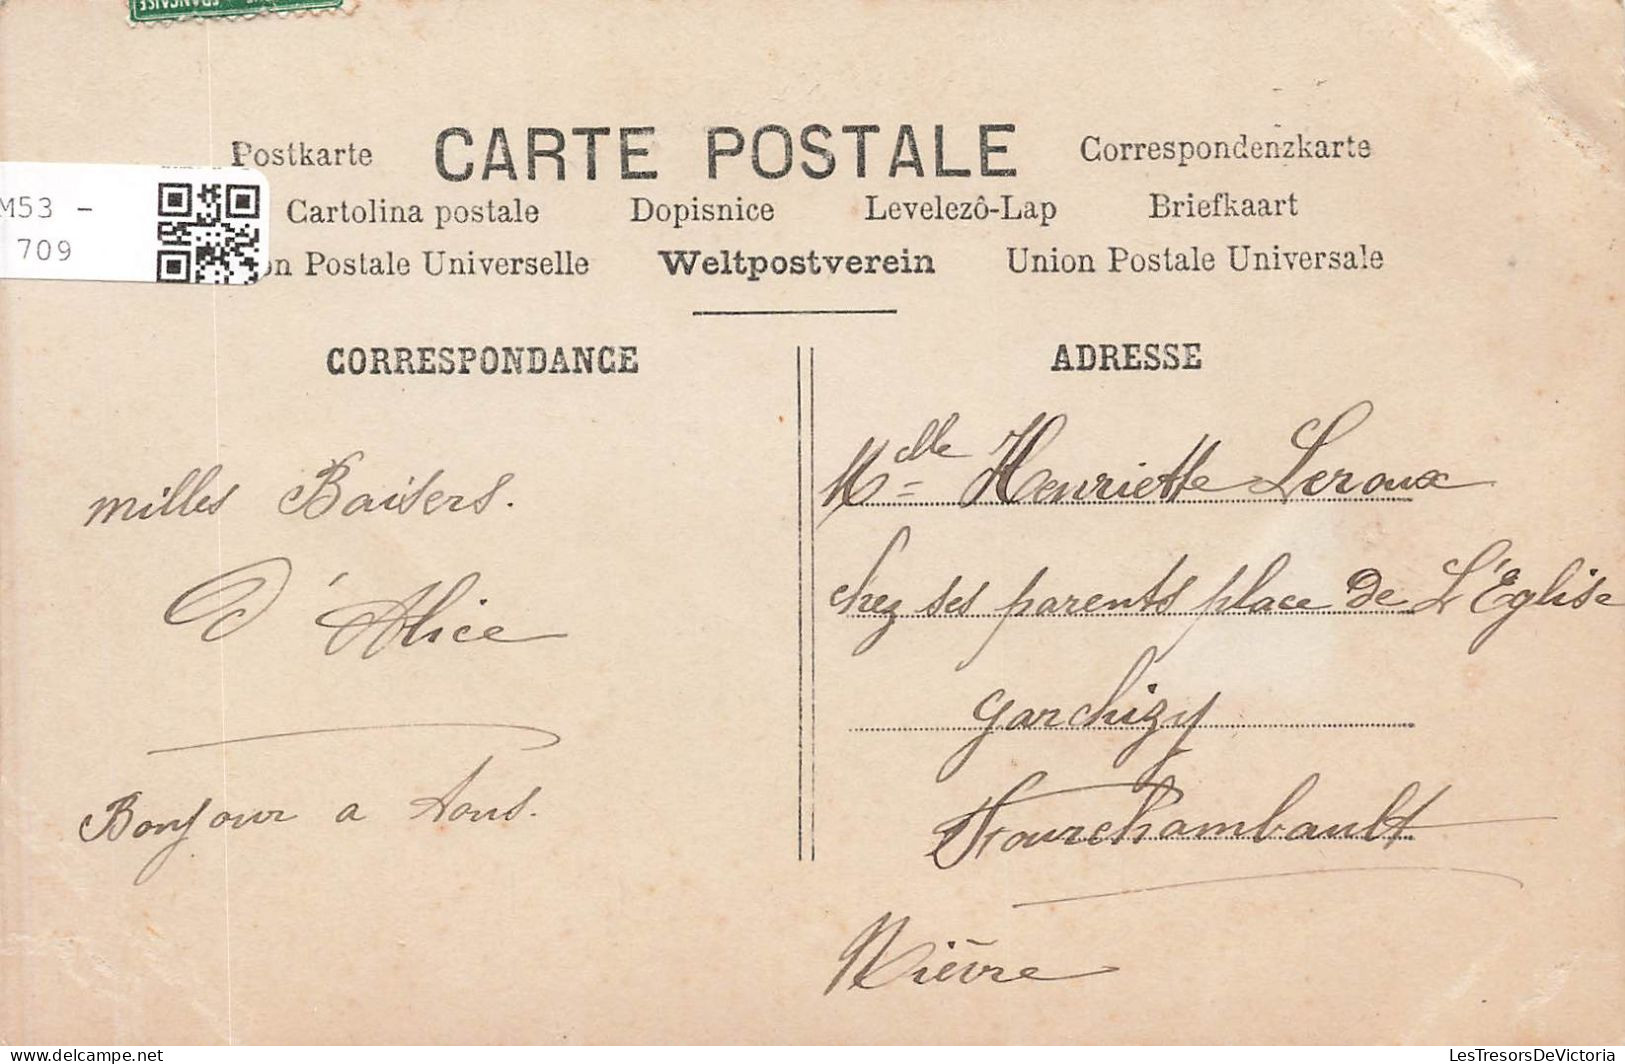 FRANÇAISE
Postkarte CARTE POSTALE Correspondenzkarte
Cartolina postale Dopisnice Levelezô-Lap Briefkaart
on Postale Universelle Weltpostverein Union Postale Universale
M53 -
709
CORRESPONDANCE
milles Baisers.
D'Alice
Bonjour a tous.
ADRESSE
Mlle Henriette Leroux
chez ses parents place de L'Eglise
Garchizy
Fourchambault
Nièvre
delcampe.net
LesTresorsDeVictoria